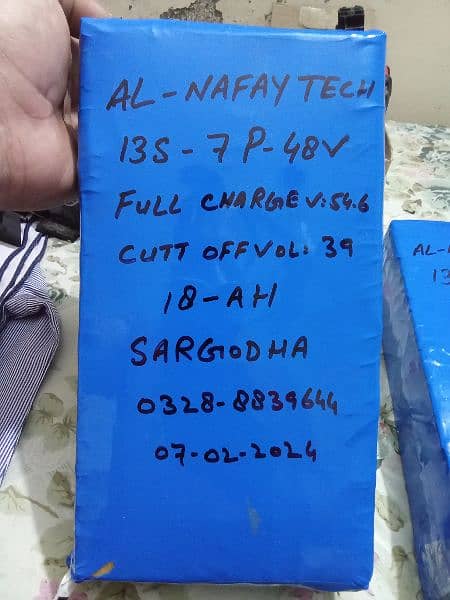 AL-NAFAY TECH
13S-7P-48V
FULL CHARGE V:54.6
CUTT OFF VOL: 39
18-AH
SARGODHA
0328-8839644
07-02-2024
AL-
13